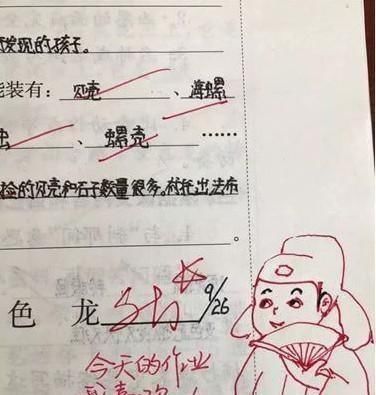 发现的孩子。
能装有：贝壳、海螺
虫、螺壳……
捡的贝壳和石子数量很多。衬托出法布
。
色 龙 9/26
今天的作业